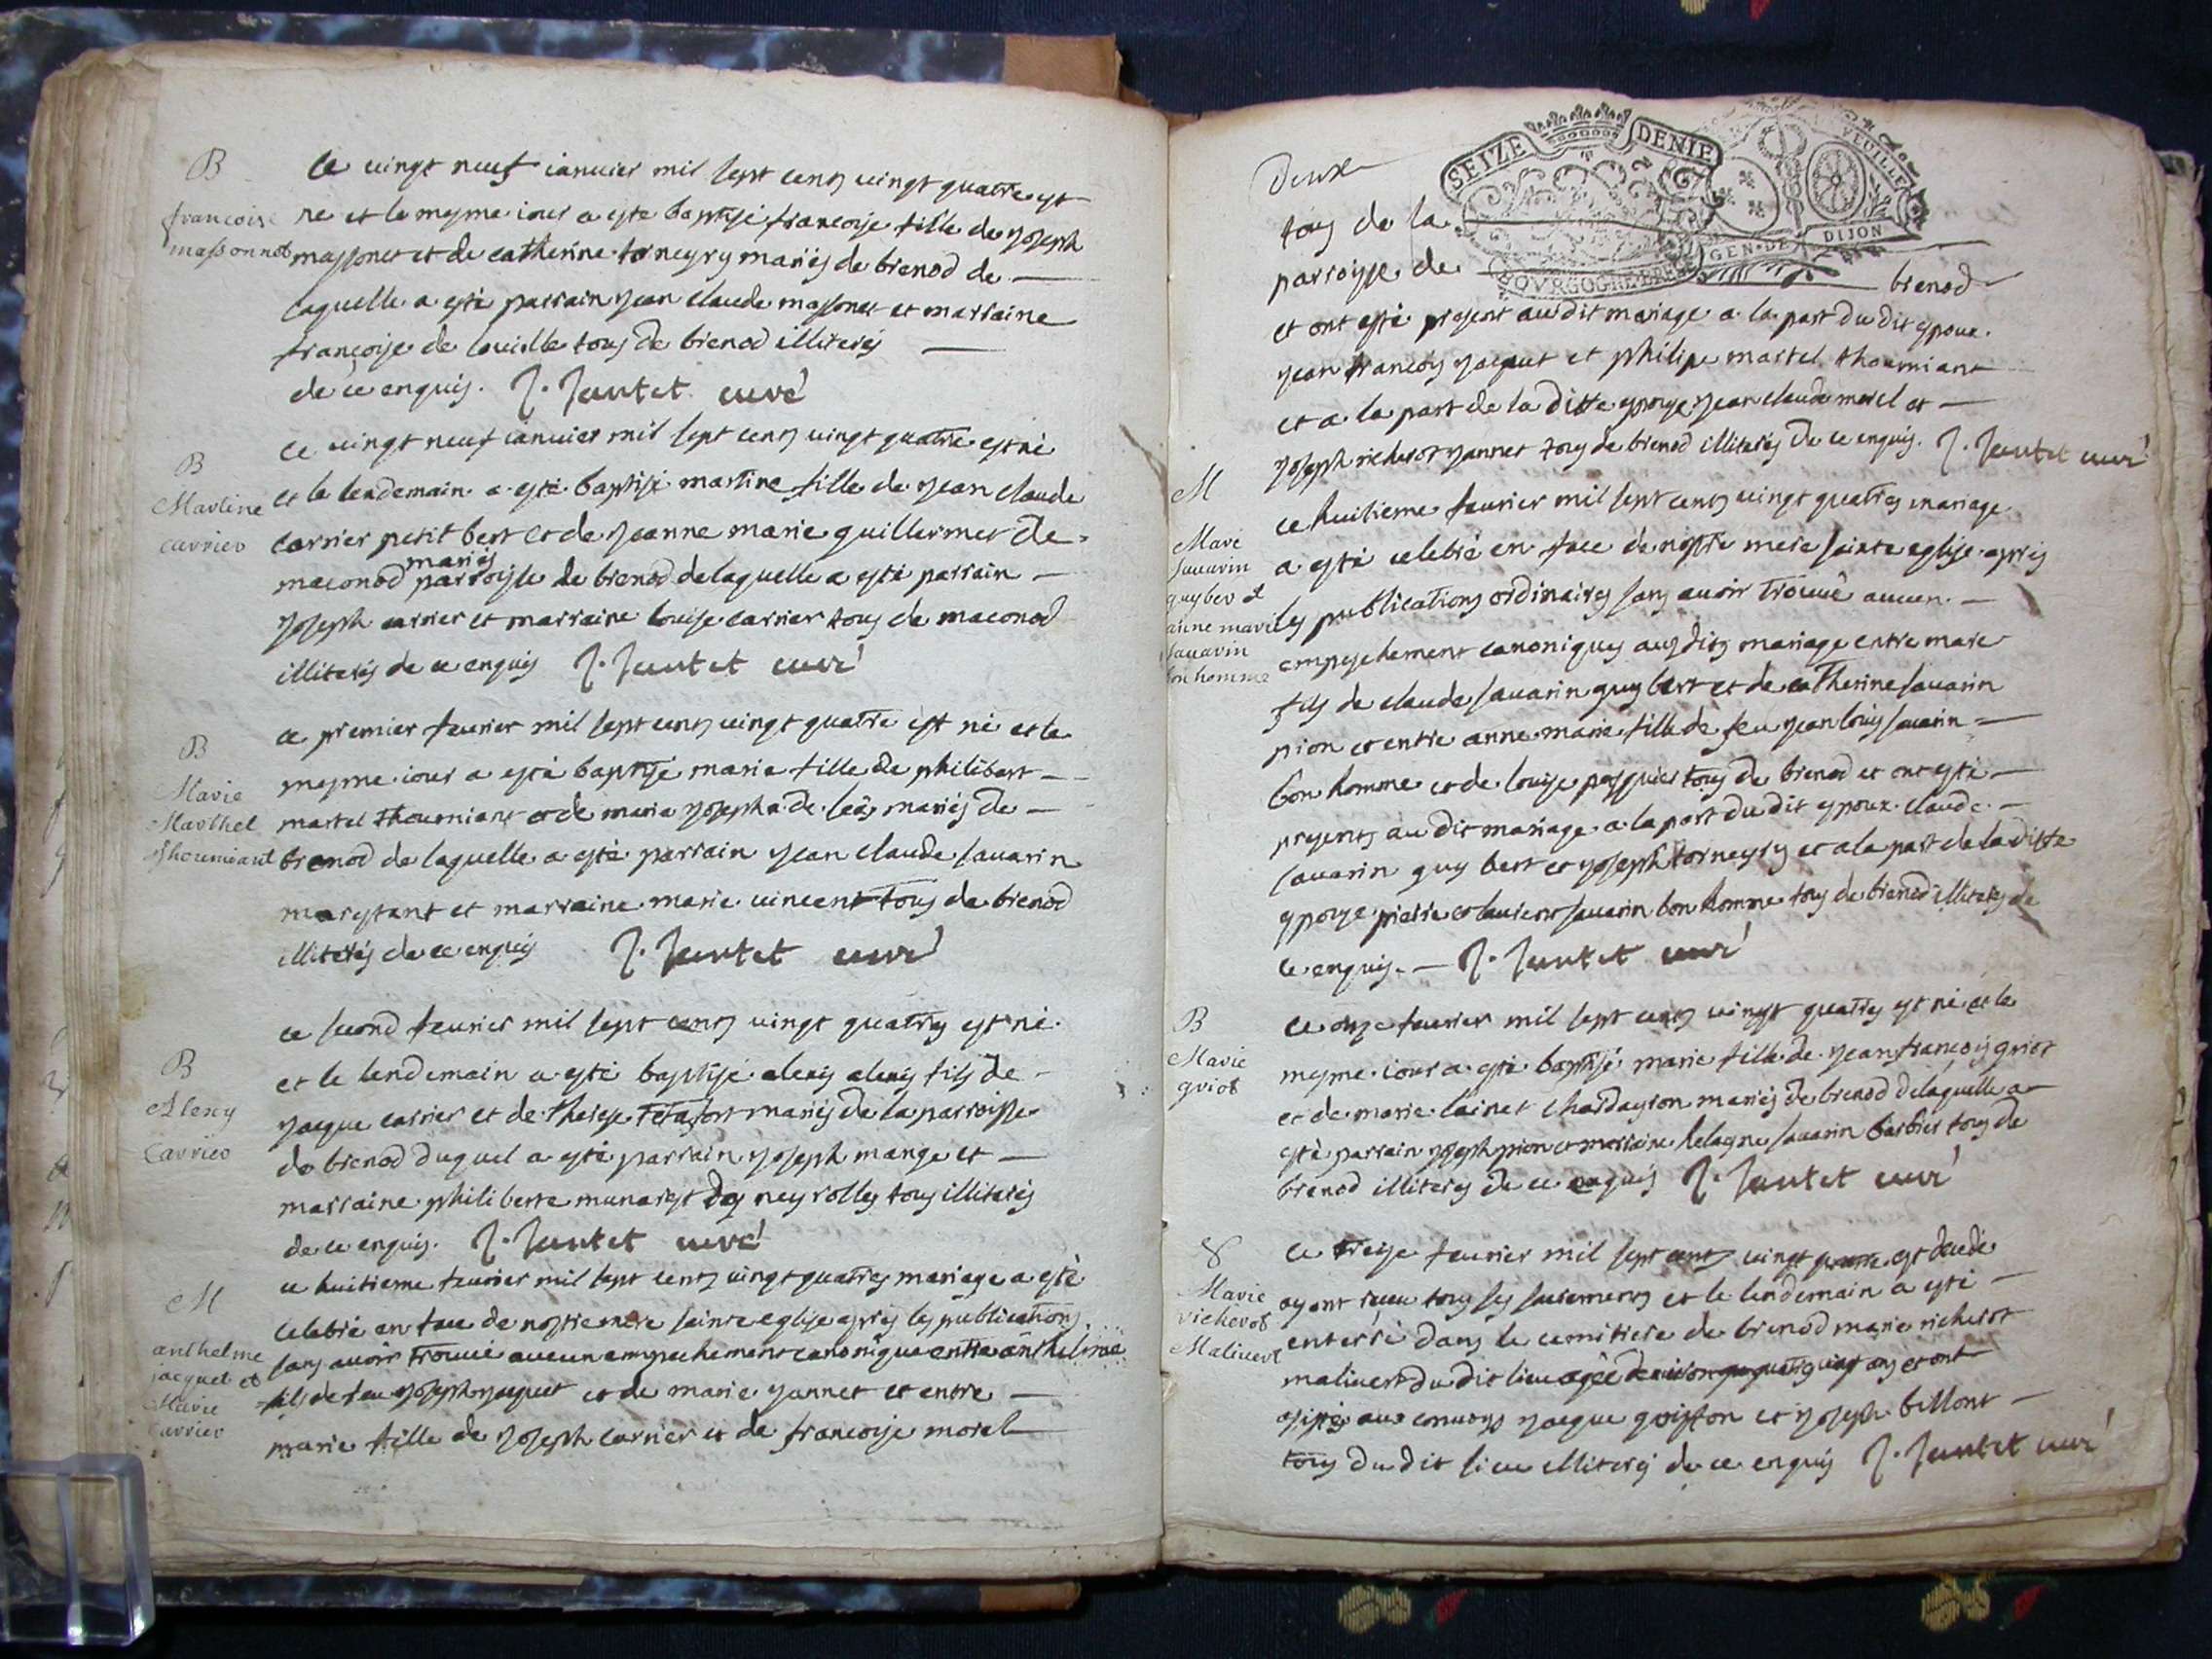 B
francoise
massonnot
Ce vingt neuf ianvier mil sept cents vingt quatre est
ne et le mesme iour a esté baptisé francoise fille de yoseph
massonet et de catherine torneyry mariés de brenod de
laquelle a esté parrain yean claude massonet et marraine
françoise de louille tous de brenod illiterés
de ce enquis. J. Jantet curé
B
Martine
carrier
ce vingt neuf ianvier mil sept cents vingt quatre est né
et le lendemain a esté baptisé martine fille de yean claude
carrier petit bert et de yeanne marie guillermet de
mariés
maconod parroisse de brenod de laquelle a esté parrain
yoseph carrier et marraine louise carrier tous de maconod
illiterés de ce enquis J. Jantet curé
B
Marie
Marthel
thoumiant
ce premier feuvrier mil sept cents vingt quatre est né et le
mesme iour a esté baptisé marie fille de philibert
martel thoumiant et de marie yosepha de mariés de
brenod de laquelle a esté parrain yean claude sauarin
et marraine marie vincent tous de brenod
illiterés de ce enquis J. Jantet curé
B
Alexy
Carrier
ce second feurier mil sept cents vingt quatres est né
et le lendemain a esté baptisé alexis alexis fils de
yacque carrier et de therese mariés de la parroisse
de brenod duquel a esté parrain yoseph mange et
marraine philiberte munaryt des neyrolles tous illiterés
de ce enquis. J. Jantet curé
M
anthelme
jacquet et
Marie
Carrier
ce huitieme feurier mil sept cents vingt quatres mariage a esté
celebré en face de nostre mere sainte eglise apres les publications
sans avoir trouué aucun empechement canonique entre anthelme
fils de feu yoseph yacquet et de marie yannet et entre
marie fille de yoseph carrier et de francoise morel
Deux
SEIZE DENIE
FEUILLE
BOVRGOGNE BRE
GEN·DE DIJON
tous de la
parroisse de brenod
et ont esté present au dit mariage a la part du dit epoux
yean francois yacquet et philipe martel thoumiant
et a la part de la ditte epouse yean claude morel et
yoseph richerot yannet tous de brenod illiterés de ce enquis. J. Jantet curé
M
Marc
sauarin
guybert et
anne marie
sauarin
bonhomme
ce huitieme feurier mil sept cents vingt quatres mariage
a esté celebré en face de nostre mere sainte eglise apres
les publications ordinaires sans auoir trouué aucun
empeschement canoniques aus dits mariage entre marc
fils de claude sauarin guy bert et de catherine sauarin
pion et entre anne marie fille de feu yean louis sauarin
bon homme et de louise pasquier tous de brenod et ont esté
presents au dit mariage a la part du dit epoux claude
sauarin guy bert et yoseph torneyry et a la part de la ditte
epouse pierre et laurent sauarin bon homme tous de brenod illiterés de
ce enquis. J. Jantet curé
B
Marie
griot
ce onze feurier mil sept cents vingt quatres est né et le
mesme iour a esté baptisé marie fille de yean francois griot
et de marie lainet chardeyron mariés de brenod de laquelle a
esté parrain yoseph pion et marraine sauarin barbier tous de
brenod illiterés de ce enquis J. Jantet curé
Marie
richerot
Maliuert
ce treise feurier mil sept cents vingt quatre est decedé
ayant receu tous ses sacrements et le lendemain a esté
enterré dans le cemitiere de brenod marie richerot
maliuert du dit lieu agée denuiron quatre vingt ans et ont
assisté aux conuoys yacque goiffon et yoseph billont
tous du dit lieu illiterés de ce enquis J. Jantet curé